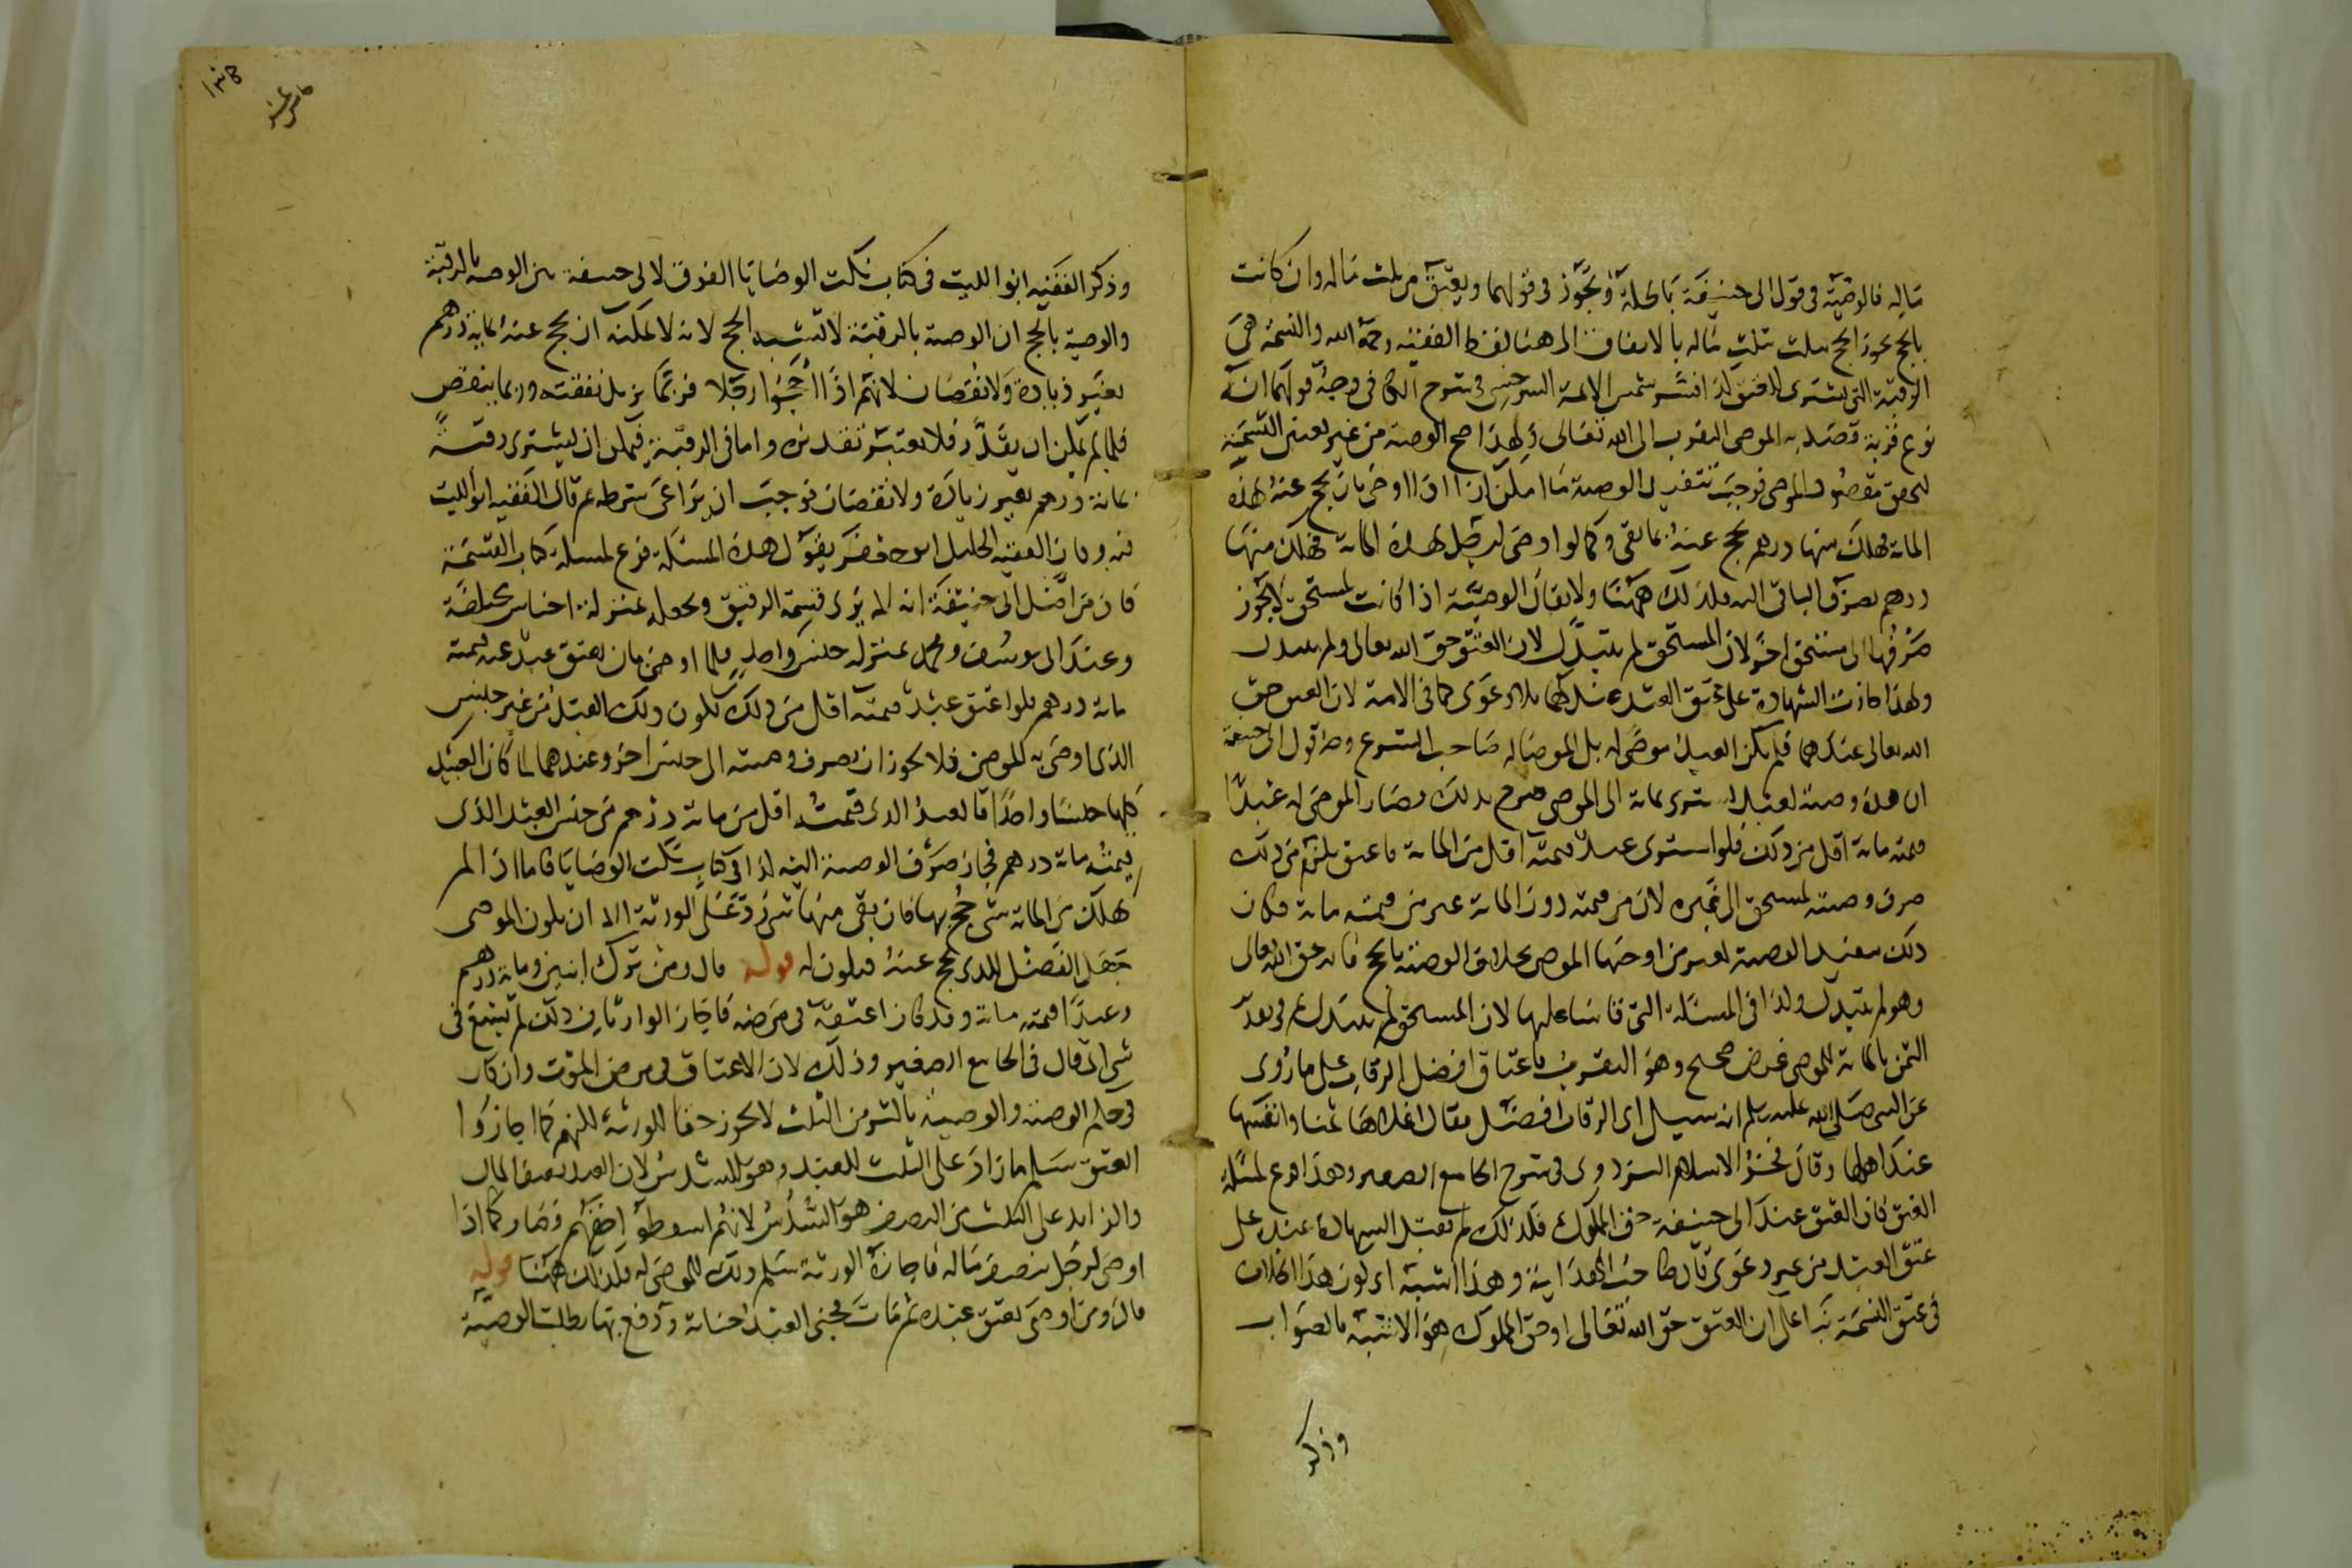 ماله فالوصية في قول ابي حنيفة باطلة وتجوز في قولهما ويعتق من ثلث ماله وان كانت
بالحج يحج بثلث ماله بالاتفاق الى هنا لفظ الفقيه رحمة الله والنسمة هي
الرقبة التي تشترى للعتق كذا فسر شمس الائمة السرخسي في شرح الكافي وجه قولهما انه
نوع قربة قصد به الموصي التقرب الى الله تعالى ولهذا صح الوصية من غير تعيين النسمة
لتحقق مقصود الموصي فوجب تنفيذ الوصية ما امكن اذا اوصى بان يحج عنه بهذه
المائة فهلك منها درهم يحج عنه بما بقي وكما لو اوصى لرجل بهذه المائة فهلك منها
درهم يصرف الباقي اليه فكذلك ههنا ولا يقال الوصية اذا كانت لمستحق لا يجوز
صرفها الى مستحق اخر لان المستحق لم يتبدل لان العتق حق الله تعالى ولم يتبدل
ولهذا جازت الشهادة على عتق العبد عندهما بلا دعوى كما في الامة لان العتق حق
الله تعالى عندهما فلم يكن العبد موصى له بل الموصى له صاحب الشرع وجه قول ابي حنيفة
ان هذه وصية لعبد يشترى بمائة الى الموصي صرح بذلك وصار الموصى له عبدا
قيمته مائة اقل من ذلك فلو اشترى عبد قيمته اقل من المائة فاعتق يلزم من ذلك
صرف وصية لمستحق الى غيره لان من قيمته دون المائة غير من قيمته مائة فكان
ذلك تنفيذ الوصية لغير من اوصى بها الموصي بخلاف الوصية بالحج فانه حق الله تعالى
وهو لم يتبدل وكذا في المسئلة التي قاسا عليها لان المستحق لم يتبدل ثم في بعد
الثمن بالمائة للموصي غرض صحيح وهو التقرب باعتاق افضل الرقاب على ما روي
عن النبي صلى الله عليه وسلم انه سئل اي الرقاب افضل فقال اغلاها ثمنا وانفسها
عند اهلها وقال فخر الاسلام البزدوي في شرح الجامع الصغير وهذا فرع لمسئلة
العتق فان العتق عند ابي حنيفة حق المملوك فلذلك لم تقبل الشهادة عنده على
عتق العبد من غير دعوى قال صاحب الهداية وهذا اشبه اي كون هذا الخلاف
في عتق النسمة بناء على ان العتق حق الله تعالى او حق المملوك هو الاشبه بالصواب
وذكر
١٣٨
وذكر الفقيه ابو الليث في كتاب نكت الوصايا الفرق لابي حنيفة بين الوصية بالرقبة
والوصية بالحج ان الوصية بالرقبة لا تشبه الحج لانه لا يمكنه ان يحج عنه بمائة درهم
بغير زيادة ولا نقصان لانهم اذا احجوا رجلا فربما يزيد نفقته وربما ينقص
فلما لم يمكن ان يقدر فلا يعتبر تقديره واما في الرقبة فيمكن ان يشترى رقبة
بمائة درهم بغير زيادة ولا نقصان فوجب ان يراعى شرطه ثم قال الفقيه ابو الليث
فيه وكان الفقيه الجليل ابو جعفر يقول هذه المسئلة فرع لمسئلة كتاب القسمة
فان من اصل ابي حنيفة انه لم يرى قسمة الرقيق وجعله بمنزلة اجناس مختلفة
وعند ابي يوسف ومحمد بمنزلة جنس واحد فلما اوصى بان يعتق عبد عنه قيمته
مائة درهم فلو اعتق عبد قيمته اقل من ذلك يكون ذلك العبد من غير جنس
الذي اوصى به الموصي فلا يجوز ان يصرف وصيته الى جنس اخر وعندهما لما كان العبيد
كلها جنسا واحدا فالعبد الذي قيمته اقل من مائة درهم من جنس العبد الذي
قيمته مائة درهم فجاز صرف الوصية اليه كذا في كتاب نكت الوصايا فاما اذا لم
يهلك من المائة شي حج بها فان بقي منها شي رد على الورثة الا ان يكون الموصي
جعل الفضل للذي يحج عنه فيكون له قوله قال ومن ترك ابنين ومائة درهم
وعبدا قيمته مائة وقد كان اعتقه في مرضه فاجاز الوارثان ذلك لم يسع في
شي اي قال في الجامع الصغير وذلك لان الاعتاق في مرض الموت وان كان
في حكم الوصية والوصية باكثر من الثلث لا تجوز حقا للورثة لكنهم لما اجازوا
العتق سلم ما زاد على الثلث للعبد وهو السدس لان العبد نصف المال
والزايد على الثلث من النصف هو السدس لانهم اسقطوا حقهم فصار كما اذا
اوصى لرجل بنصف ماله فاجازه الورثة سلم ذلك للموصى له فكذلك ههنا قوله
قال ومن اوصى بعتق عبده ثم مات فجنى العبد جناية ودفع بها بطلت الوصية